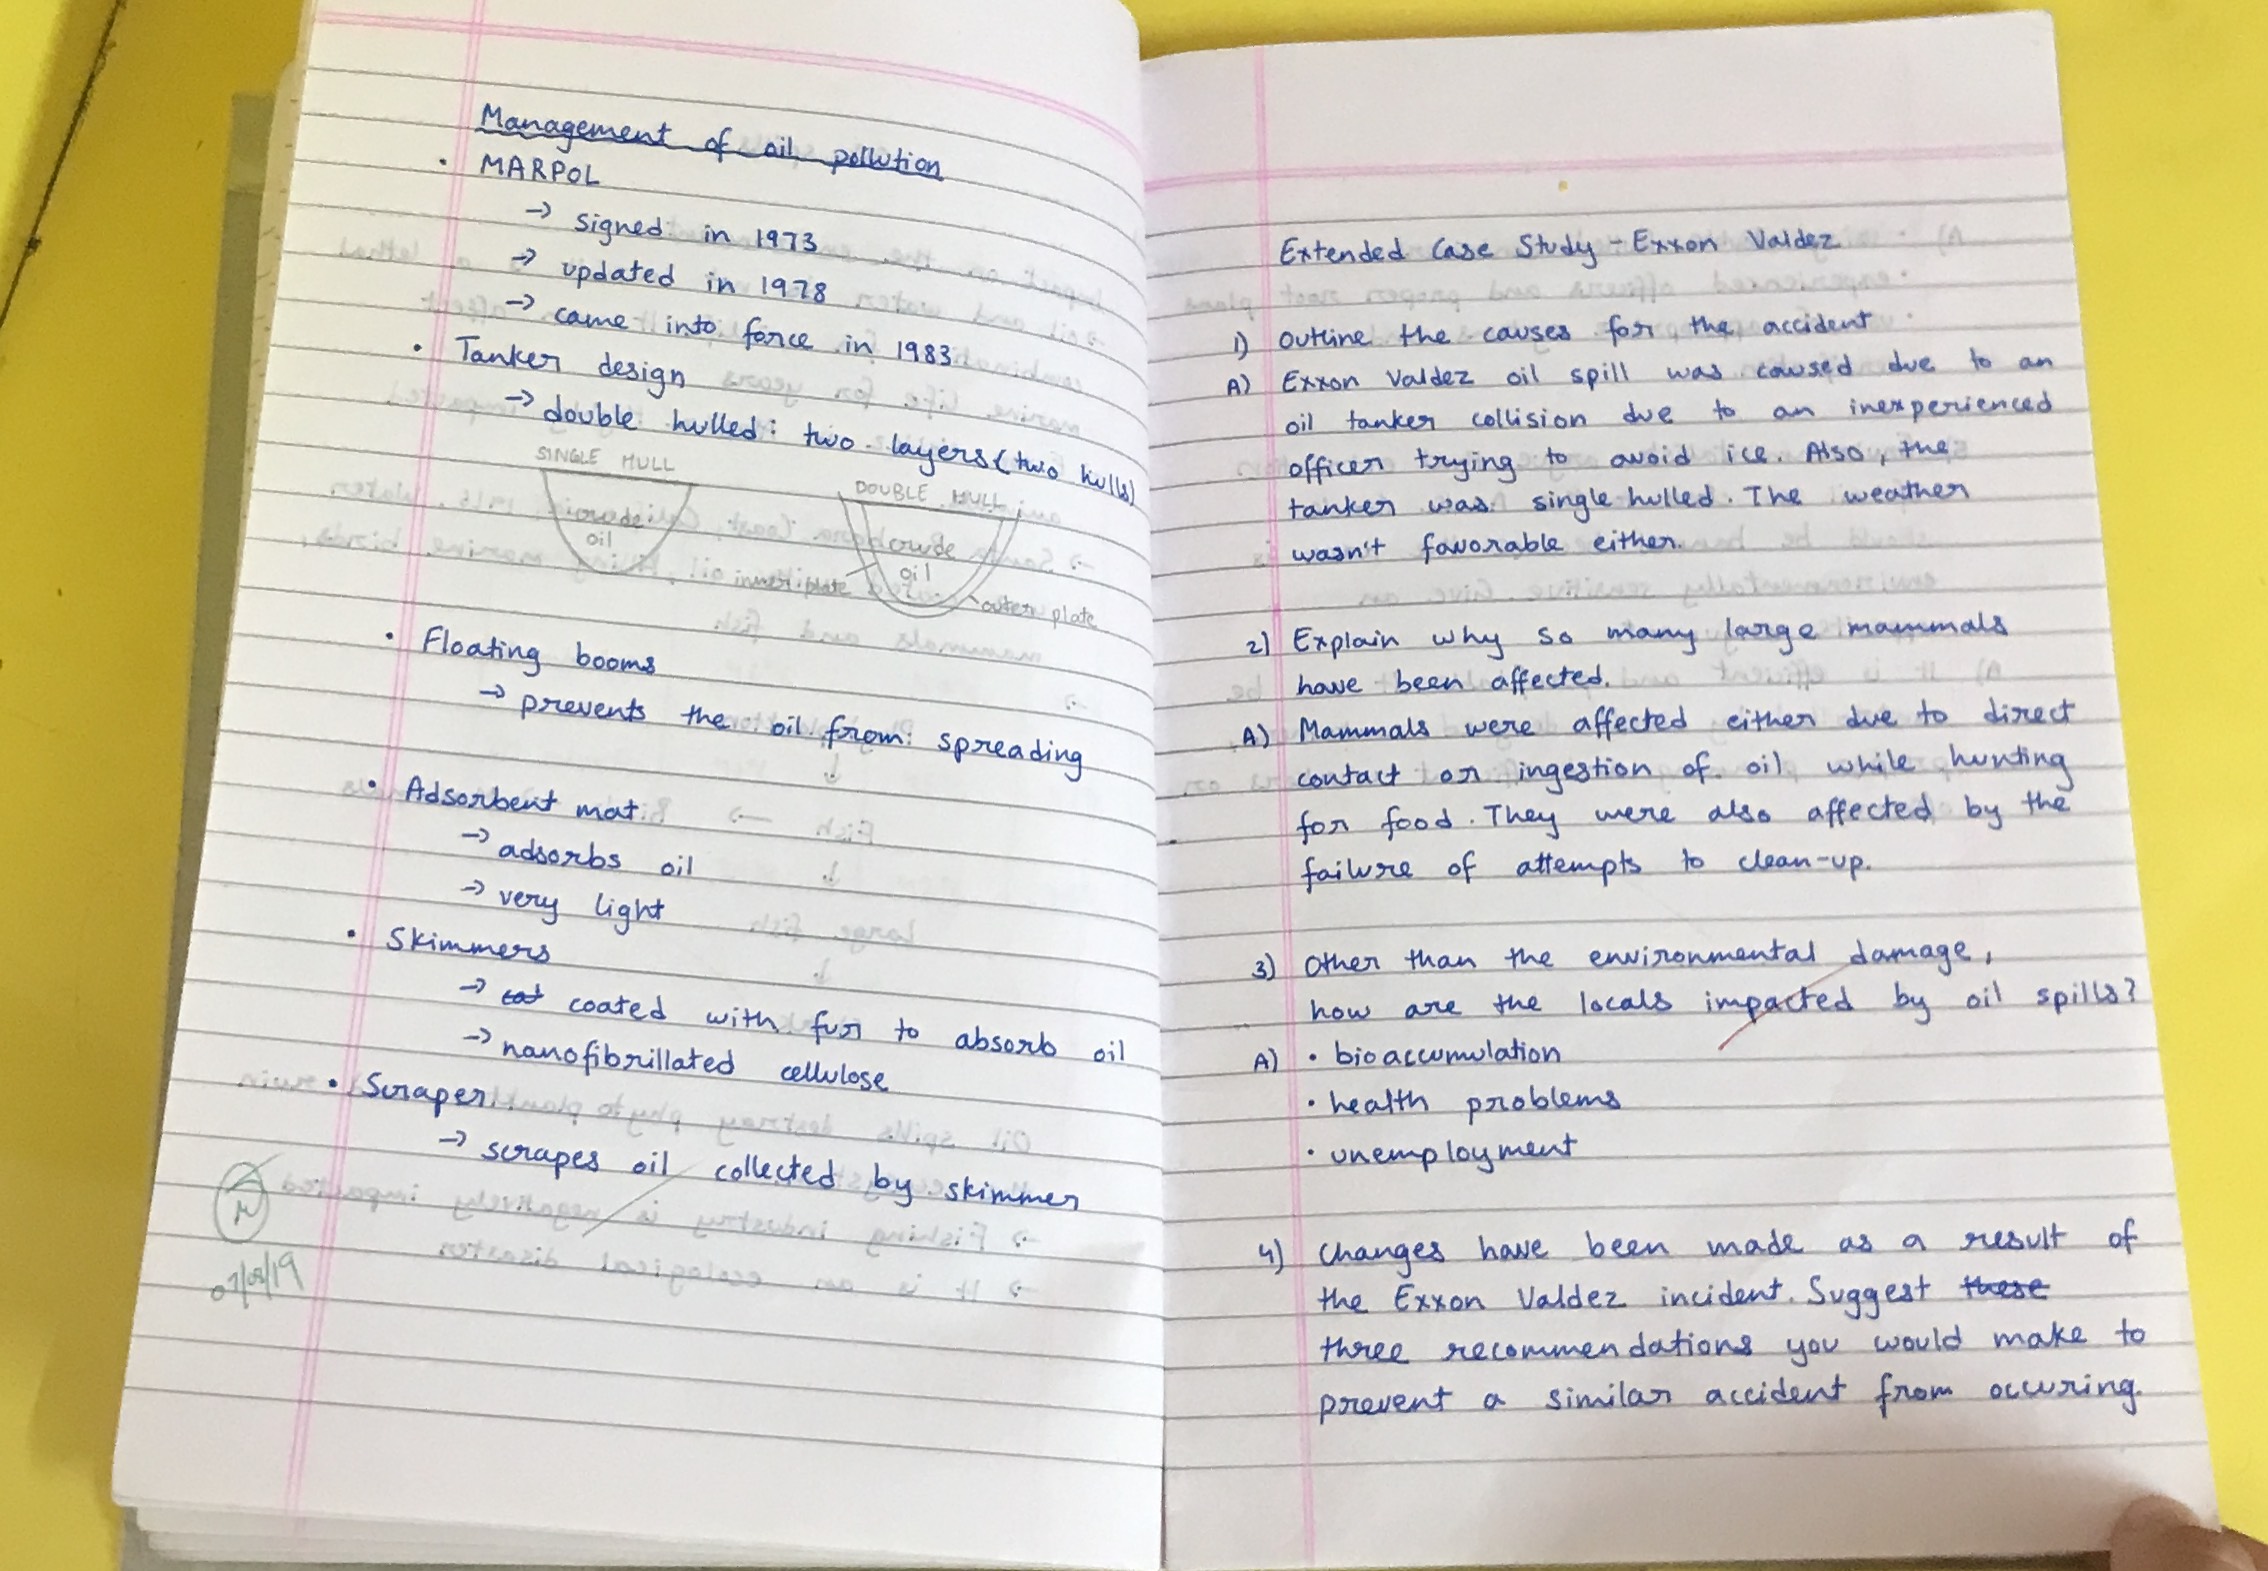 Management of oil pollution
• MARPOL
→ signed in 1973
→ updated in 1978
→ came into force in 1983
• Tanker design
→ double hulled: two layers (two hulls)
SINGLE HULL
crude
oil
DOUBLE HULL
crude
oil
inner plate
outer plate
• Floating booms
→ prevents the oil from spreading
• Adsorbent mat
→ adsorbs oil
→ very light
• Skimmers
→ coated with fur to absorb oil
→ nanofibrillated cellulose
• Scraper
→ scrapes oil collected by skimmer
Extended Case Study - Exxon Valdez
1) Outline the causes for the accident
A) Exxon Valdez oil spill was caused due to an
oil tanker collision due to an inexperienced
officer trying to avoid ice. Also, the
tanker was single hulled. The weather
wasn't favorable either.
2) Explain why so many large mammals
have been affected.
A) Mammals were affected either due to direct
contact or ingestion of oil while hunting
for food. They were also affected by the
failure of attempts to clean-up.
3) Other than the environmental damage,
how are the locals impacted by oil spills?
A) • bioaccumulation
• health problems
• unemployment
4) Changes have been made as a result of
the Exxon Valdez incident. Suggest these
three recommendations you would make to
prevent a similar accident from occuring.